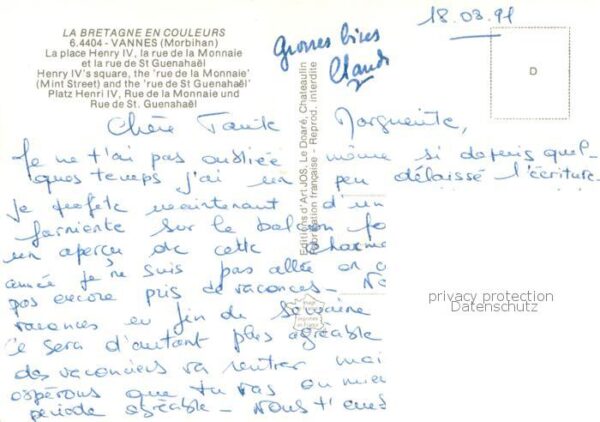 LA BRETAGNE EN COULEURS
6.4404 - VANNES (Morbihan)
La place Henry IV, la rue de la Monnaie
et la rue de St Guenahaël
Henry IV's square, the 'rue de la Monnaie'
(Mint Street) and the 'rue de St Guenahaël'
Platz Henri IV, Rue de la Monnaie und
Rue de St. Guenahaël
18.03.91
Grosses bises
Claude
D
Editions d'Art JOS, Le Doaré, Chateaulin
Fabrication française - Reprod. interdite
Chère Tante Marguerite,
Je ne t'ai pas oubliée même si depuis quel-
ques temps j'ai un peu délaissé l'écriture.
Je profite maintenant d'un
farniente sur le balcon
un aperçu de cette
année je ne suis pas allée en
pas encore pris de vacances -
vacances en fin de semaine
Ce sera d'autant plus agréable
des vacanciers va rentrer mai
espérons que tu vas au mieu
période agréable - Nous t'
privacy protection
Datenschutz